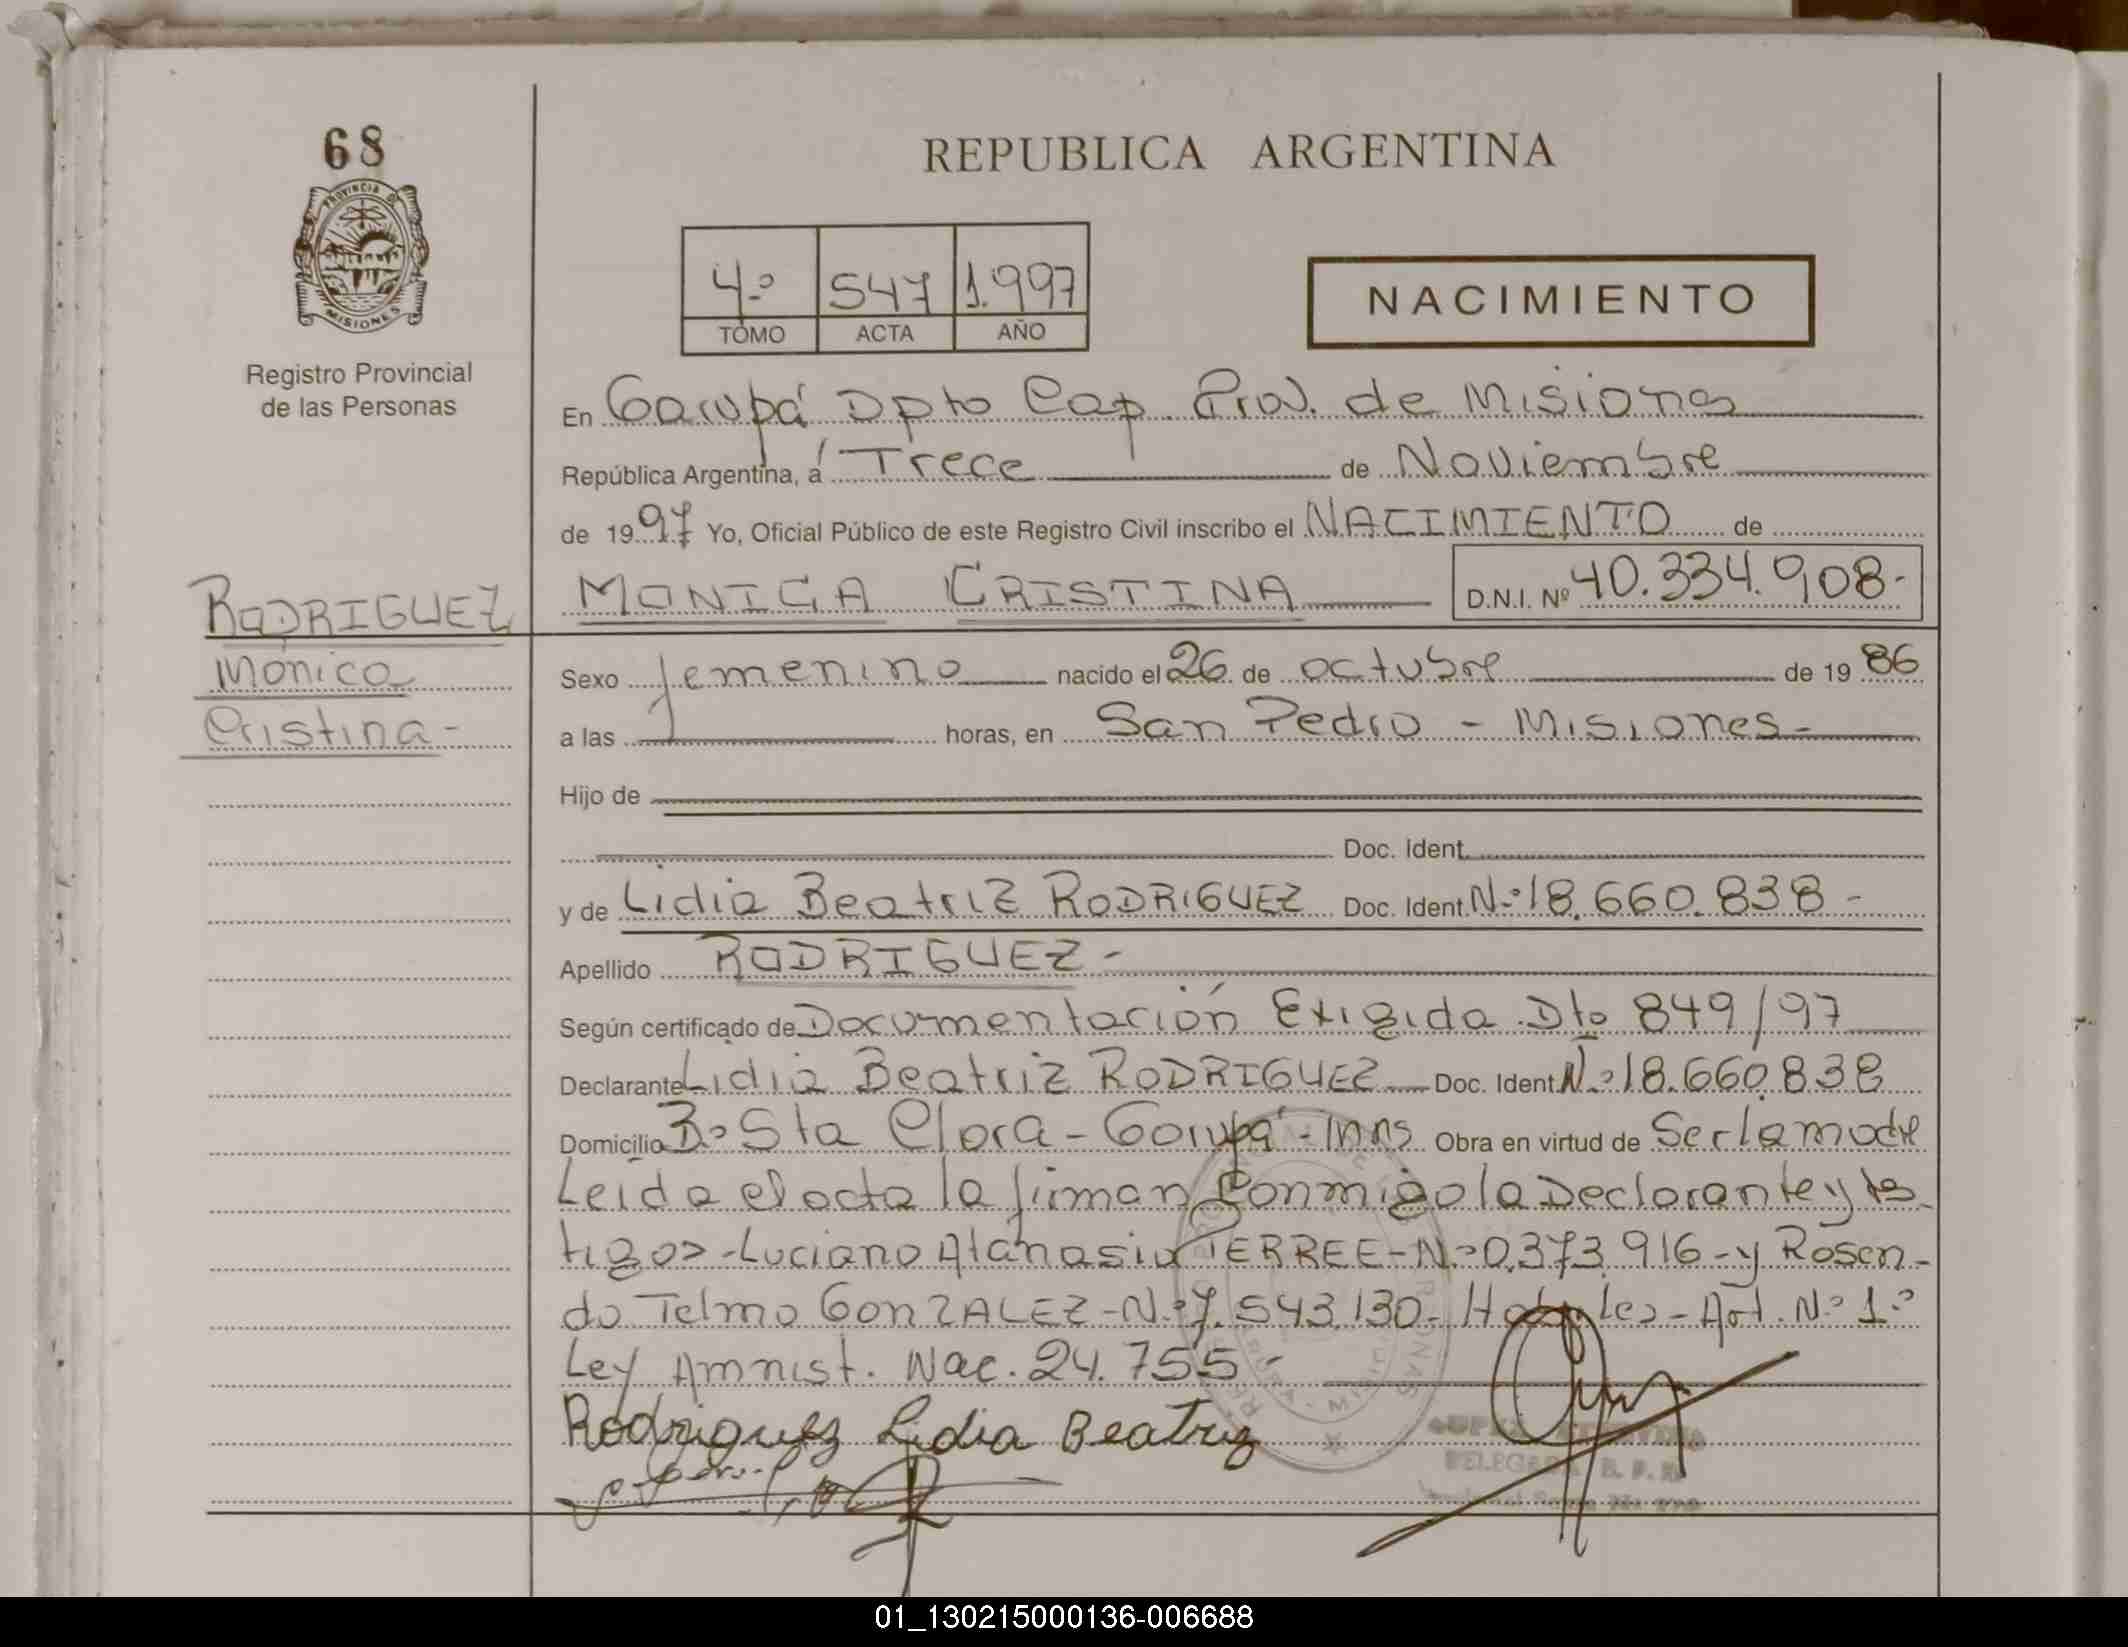 68
PROVINCIA DE
MISIONES
Registro Provincial
de las Personas
REPUBLICA ARGENTINA
4º 547 1.997
TOMO ACTA AÑO
NACIMIENTO
En Garupá Dpto Cap. Prov. de Misiones
República Argentina, a Trece de Noviembre
de 1997 Yo, Oficial Público de este Registro Civil inscribo el NACIMIENTO de
MONICA CRISTINA D.N.I. Nº 40.334.908-
RODRIGUEZ
Mónica
Cristina-
Sexo femenino nacido el 26 de octubre de 19 86
a las horas, en San Pedro - Misiones-
Hijo de
Doc. Ident.
y de Lidia Beatriz RODRIGUEZ Doc. Ident. Nº 18.660.838-
Apellido RODRIGUEZ-
Según certificado de Documentación Exigida Dto 849/97
Declarante Lidia Beatriz RODRIGUEZ Doc. Ident. Nº 18.660.838
Domicilio Bº Sta Clara - Garupá - Mns Obra en virtud de Ser la madre
Leida el acta la firman conmigo la Declarante y tes-
tigos - Luciano Atanasio FERREE - Nº 0.373.916 - y Rosen-
do Telmo GONZALEZ - Nº 7.543.130. Habiles - Art. Nº 1º
Ley Amnist. Nac. 24.755-
Rodriguez Lidia Beatriz
DELEGADA R. P. P.
01_130215000136-006688